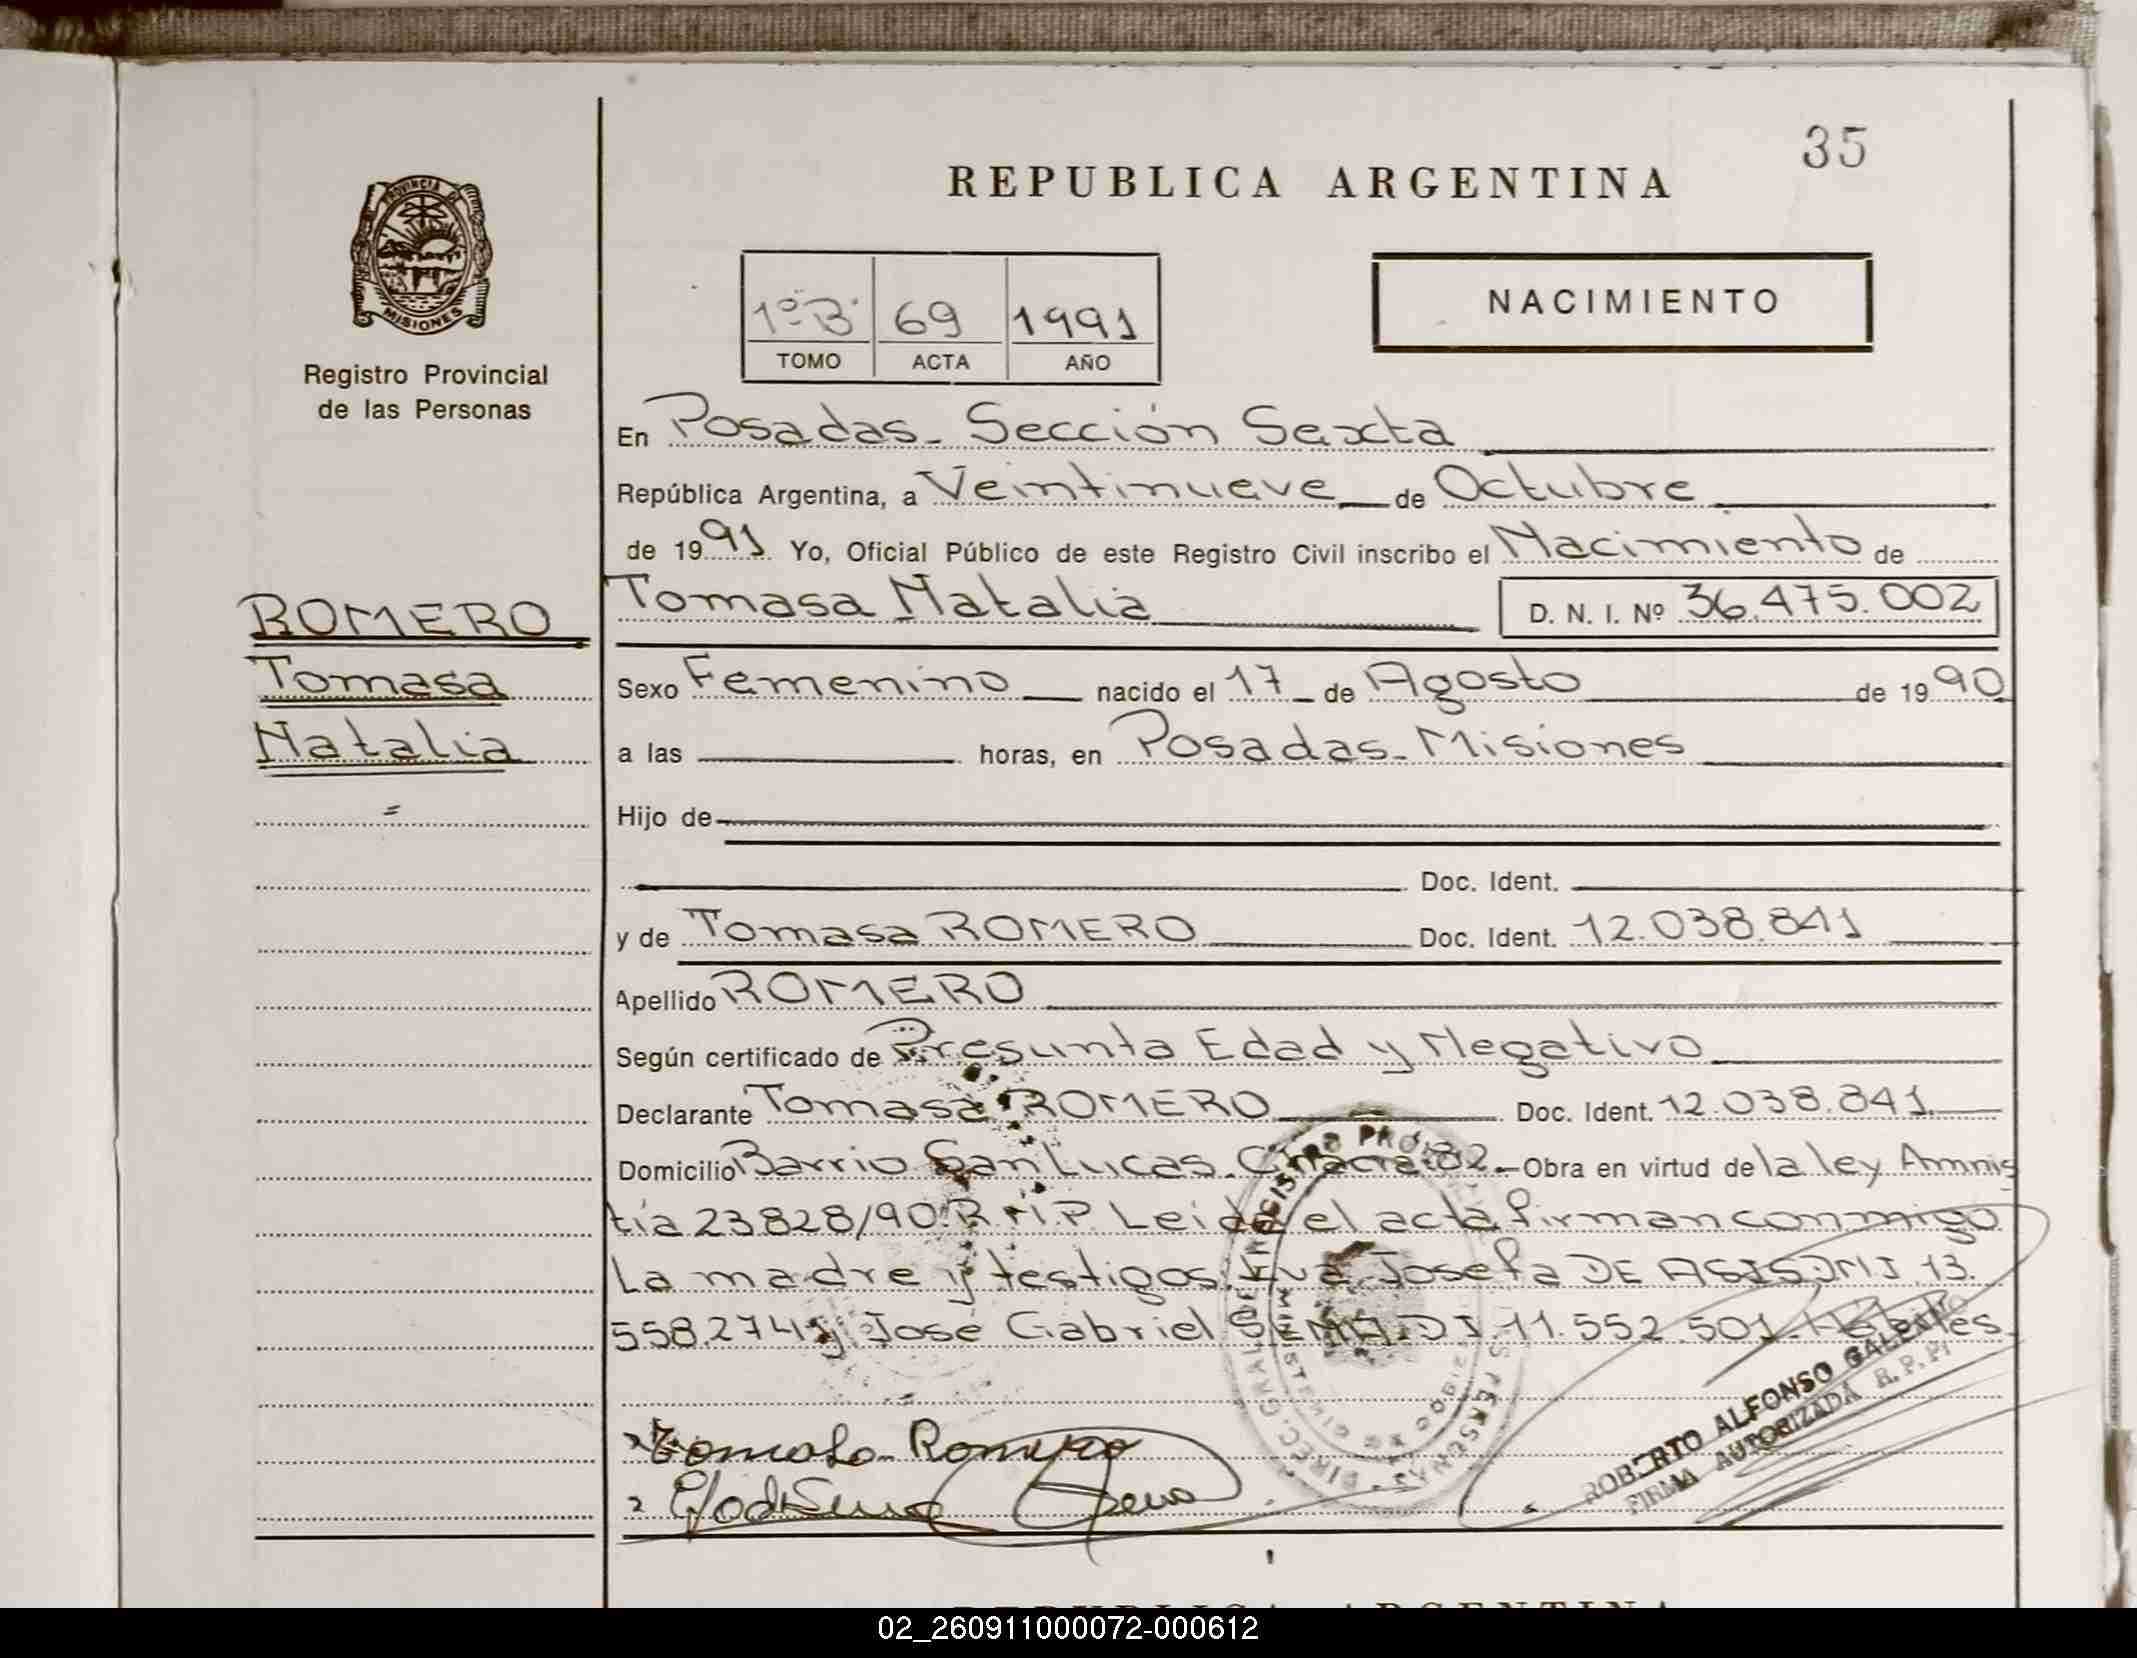 35
REPUBLICA ARGENTINA
PROVINCIA DE
MISIONES
Registro Provincial
de las Personas
1º B 69 1991
TOMO ACTA AÑO
NACIMIENTO
En Posadas - Sección Sexta
República Argentina, a Veintinueve de Octubre
de 1991 Yo, Oficial Público de este Registro Civil inscribo el Nacimiento de
ROMERO
Tomasa
Natalia
Tomasa Natalia D. N. I. Nº 36.475.002
Sexo Femenino nacido el 17 de Agosto de 1990
a las horas, en Posadas - Misiones
Hijo de
Doc. Ident.
y de Tomasa ROMERO Doc. Ident. 12.038.841
Apellido ROMERO
Según certificado de Presunta Edad y Negativo
Declarante Tomasa ROMERO Doc. Ident. 12.038.841
Domicilio Barrio San Lucas - Chacra 82 - Obra en virtud de la ley Amnis
tía 23828/90. Leida el acta firman conmigo
La madre y testigos Josefa DE ASIS DNI 13.
558.274 y José Gabriel DI 11.552.501.
Tomasa Romero
ROBERTO ALFONSO GALEANO
FIRMA AUTORIZADA R.P.P.
REPUBLICA ARGENTINA
02_260911000072-000612